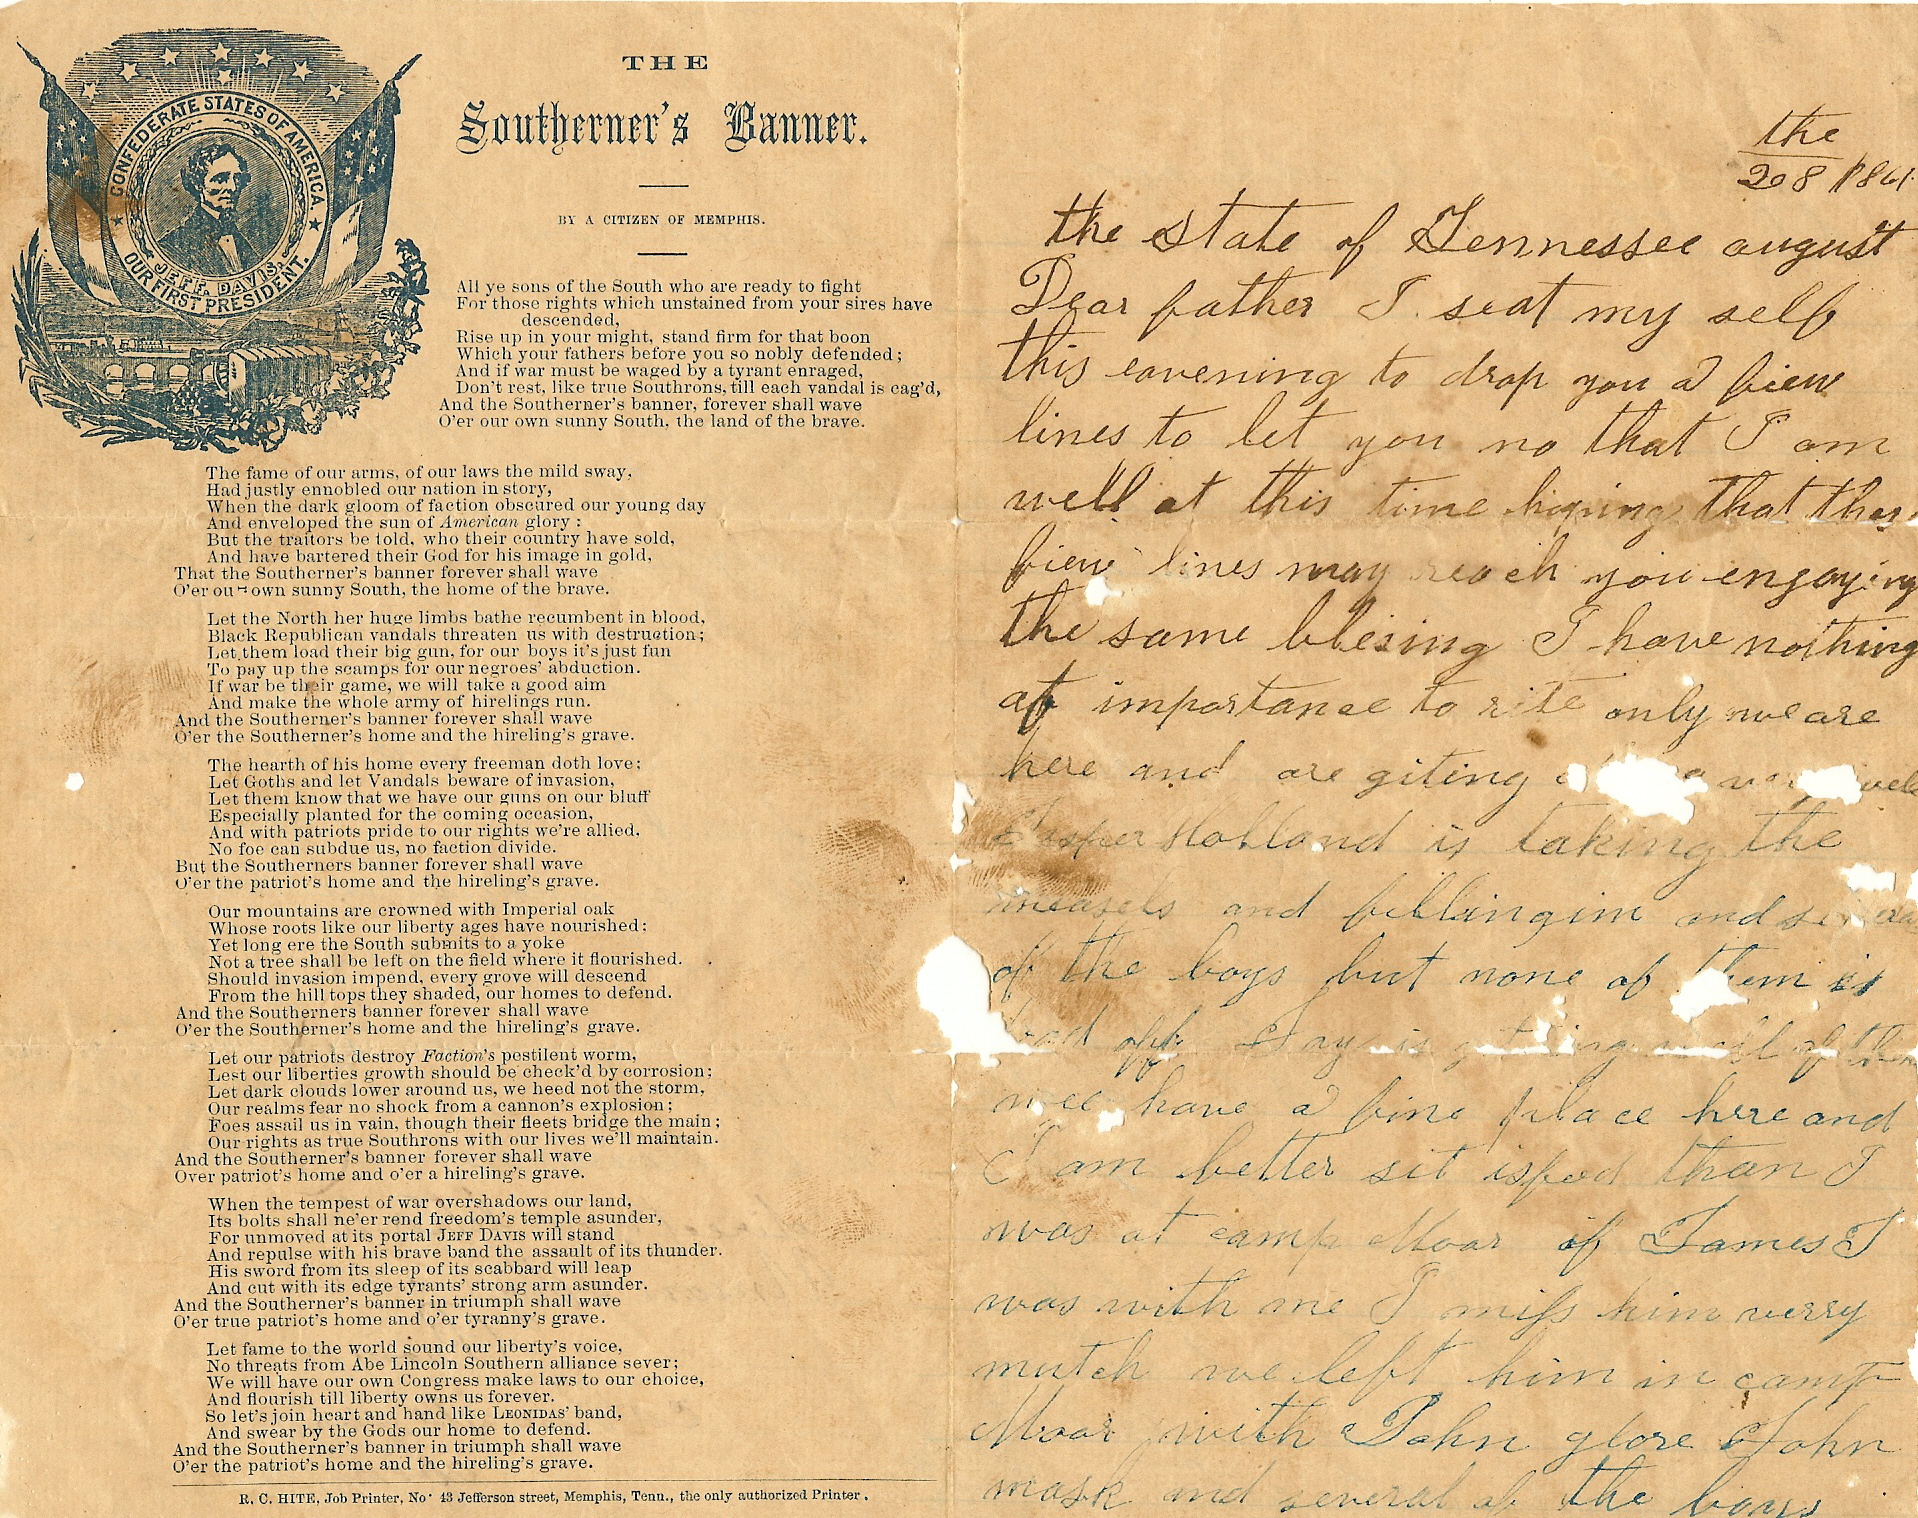 CONFEDERATE STATES OF AMERICA.
JEFF. DAVIS,
OUR FIRST PRESIDENT.
THE
Southerner's Banner.
BY A CITIZEN OF MEMPHIS.
All ye sons of the South who are ready to fight
For those rights which unstained from your sires have
descended,
Rise up in your might, stand firm for that boon
Which your fathers before you so nobly defended;
And if war must be waged by a tyrant enraged,
Don't rest, like true Southrons, till each vandal is cag'd,
And the Southerner's banner, forever shall wave
O'er our own sunny South, the land of the brave.
The fame of our arms, of our laws the mild sway,
Had justly ennobled our nation in story,
When the dark gloom of faction obscured our young day
And enveloped the sun of American glory:
But the traitors be told, who their country have sold,
And have bartered their God for his image in gold,
That the Southerner's banner forever shall wave
O'er ou own sunny South, the home of the brave.
Let the North her huge limbs bathe recumbent in blood,
Black Republican vandals threaten us with destruction;
Let them load their big gun, for our boys it's just fun
To pay up the scamps for our negroes' abduction.
If war be their game, we will take a good aim
And make the whole army of hirelings run.
And the Southerner's banner forever shall wave
O'er the Southerner's home and the hireling's grave.
The hearth of his home every freeman doth love;
Let Goths and let Vandals beware of invasion,
Let them know that we have our guns on our bluff
Especially planted for the coming occasion,
And with patriots pride to our rights we're allied,
No foe can subdue us, no faction divide.
But the Southerners banner forever shall wave
O'er the patriot's home and the hireling's grave.
Our mountains are crowned with Imperial oak
Whose roots like our liberty ages have nourished;
Yet long ere the South submits to a yoke
Not a tree shall be left on the field where it flourished.
Should invasion impend, every grove will descend
From the hill tops they shaded, our homes to defend.
And the Southerners banner forever shall wave
O'er the Southerner's home and the hireling's grave.
Let our patriots destroy Faction's pestilent worm,
Lest our liberties growth should be check'd by corrosion;
Let dark clouds lower around us, we heed not the storm,
Our realms fear no shock from a cannon's explosion;
Foes assail us in vain, though their fleets bridge the main;
Our rights as true Southrons with our lives we'll maintain.
And the Southerner's banner forever shall wave
Over patriot's home and o'er a hireling's grave.
When the tempest of war overshadows our land,
Its bolts shall ne'er rend freedom's temple asunder,
For unmoved at its portal JEFF DAVIS will stand
And repulse with his brave band the assault of its thunder.
His sword from its sleep of its scabbard will leap
And cut with its edge tyrants' strong arm asunder.
And the Southerner's banner in triumph shall wave
O'er true patriot's home and o'er tyranny's grave.
Let fame to the world sound our liberty's voice,
No threats from Abe Lincoln Southern alliance sever;
We will have our own Congress make laws to our choice,
And flourish till liberty owns us forever.
So let's join heart and hand like LEONIDAS' band,
And swear by the Gods our home to defend.
And the Southerner's banner in triumph shall wave
O'er the patriot's home and the hireling's grave.
R. C. HITE, Job Printer, No 43 Jefferson street, Memphis, Tenn., the only authorized Printer.
the
208 1861
the state of Tennessee august
Dear father I seat my self
this eavening to drop you a fiew
lines to let you no that I am
well at this time hoping that
fiew lines may reach you engoying
the same blesing I have nothing
of importance to rite only we are
here and are giting
Holland is taking the
measels and and
of the boys but none of them is
bad off is getting well of them
wee have a fine place here and
I am better sit isfied than I
was at camp Moar if James T
was with me I miss him verry
mutch we left him in camp
Moar with John glore John
mask and several of the boys